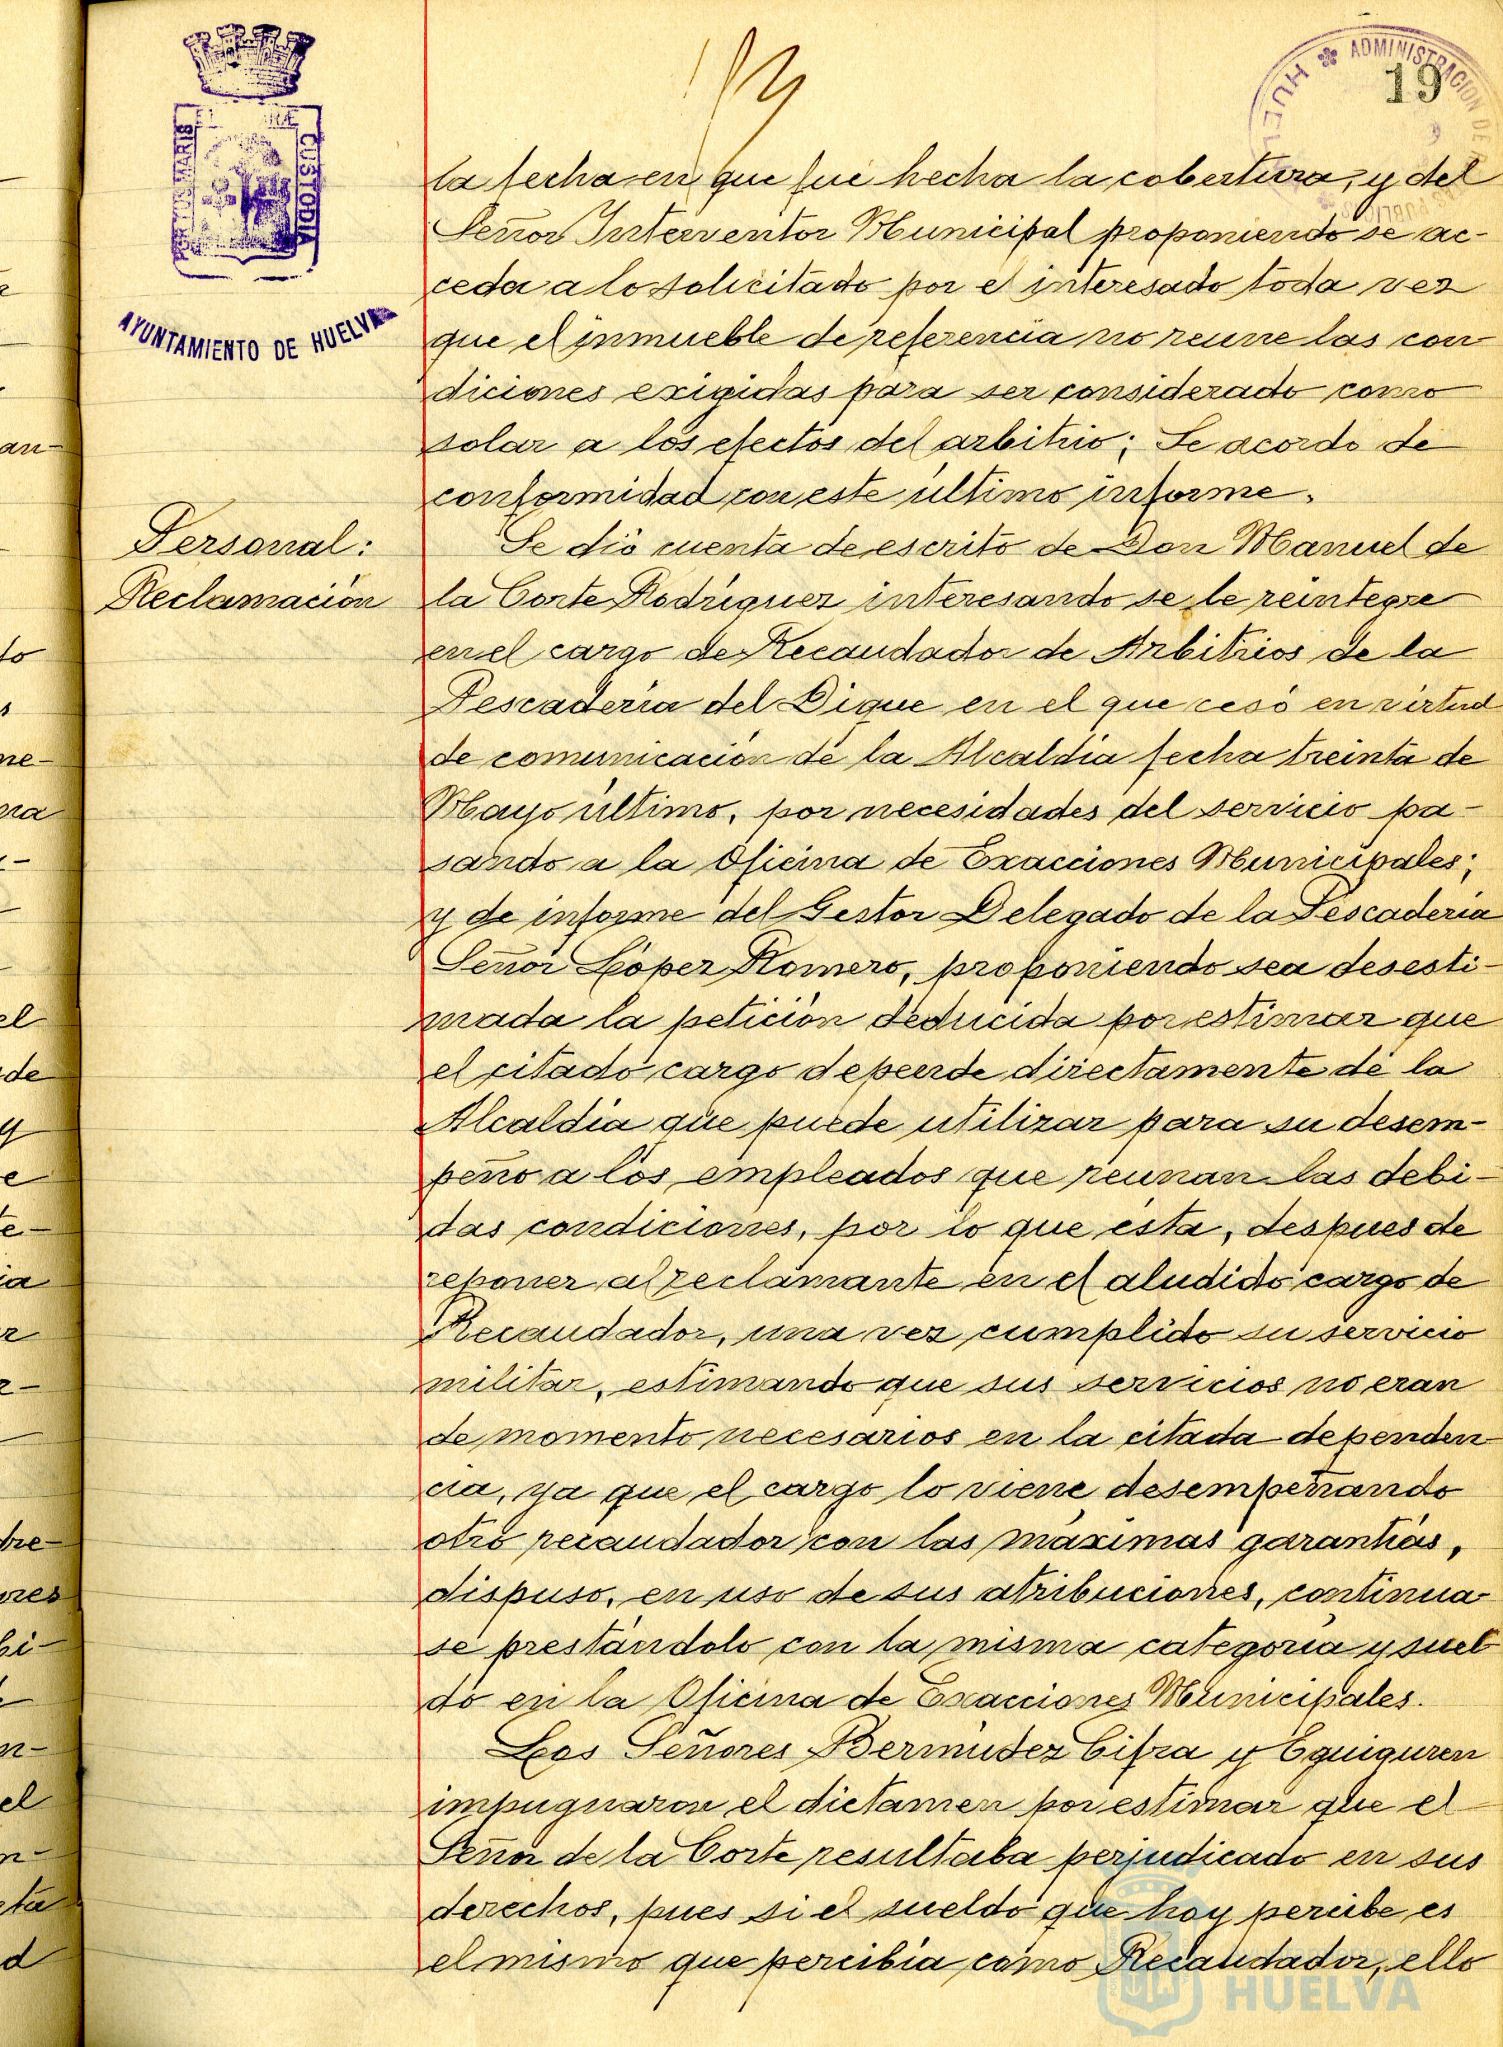 19
ADMINISTRACION DE
HUEL
PORTUS MARIS
CUSTODIA
AYUNTAMIENTO DE HUELVA
la fecha en que fué hecha la cobertura, y del
Señor Interventor Municipal proponiendo se ac-
ceda a lo solicitado por el interesado toda vez
que el inmueble de referencia no reune las con
diciones exigidas para ser considerado como
solar a los efectos del arbitrio; Se acordo de
conformidad con este último informe.
Personal:
Reclamación
Se dió cuenta de escrito de Don Manuel de
la Corte Rodríguez interesando se le reintegre
en el cargo de Recaudador de Arbitrios de la
Pescadería del Dique en el que cesó en virtud
de comunicación de la Alcaldía fecha treinta de
Mayo último, por necesidades del servicio pa-
sando a la Oficina de Exacciones Municipales;
y de informe del Gestor Delegado de la Pescadería
Señor López Romero, proponiendo sea desesti-
mada la petición deducida por estimar que
el citado cargo depende directamente de la
Alcaldía que puede utilizar para su desem-
peño a los empleados que reunan las debi-
das condiciones, por lo que ésta, despues de
reponer al reclamante en el aludido cargo de
Recaudador, una vez cumplido su servicio
militar, estimando que sus servicios no eran
de momento necesarios en la citada dependen
cia, ya que el cargo lo viene desempeñando
otro recaudador con las máximas garantías,
dispuso, en uso de sus atribuciones, continua-
se prestándolo con la misma categoría y suel
do en la Oficina de Exacciones Municipales.
Los Señores Bermúdez Cifra y Eguiguren
impugnaron el dictamen por estimar que el
Señor de la Corte resultaba perjudicado en sus
derechos, pues si el sueldo que hoy percibe es
el mismo que percibía como Recaudador, ello
HUELVA